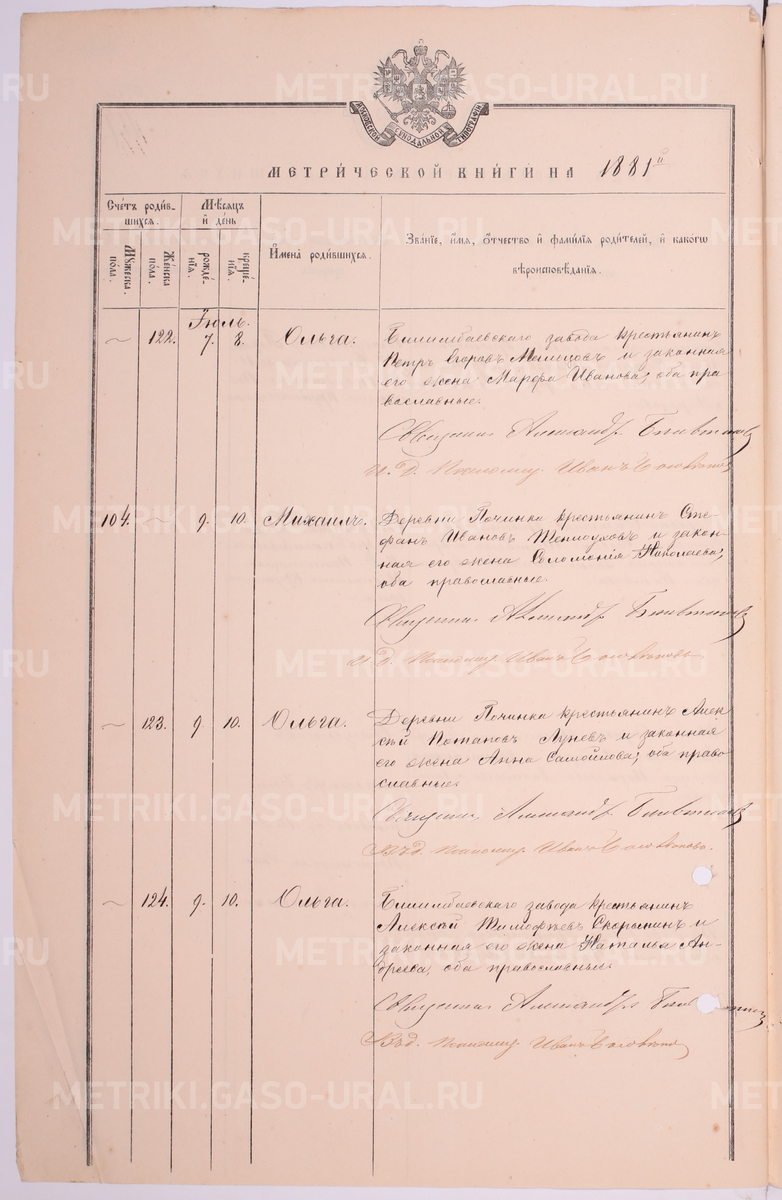 МОСКОВСКОЙ СѴНОДАЛЬНОЙ ТИПОГРАФІИ
МЕТРИ́ЧЕСКОЙ КНИ́ГИ НА 1881й
Счéтъ роди́вшихся.
Мѣсяцъ и̂ де́нь
И̂мена̀ роди́вшихся.
Зва́нїе, и̂́мя, ѻ̂́тчество и̂ фами́лїя роди́телей, и̂ како́гѡ
вѣроисповѣ́данїя.
Мꙋ́жеска по́ла.
Же́нска по́ла.
рожде́нїя.
креще́нїя.
Іюль.
— 122. 7. 8. Ольга.
Билимбаевскаго завода крестьянинъ
Петръ Егоровъ и законная
его жена Марѳа Иванова; оба пра
вославные.
Священникъ Александръ
И. Д. Псаломщ. Иванъ
104. — 9. 10. Михаилъ.
Деревни Починка крестьянинъ Сте-
фанъ Ивановъ Теплоуховъ и закон-
ная его жена Соломонія Николаева;
оба православные.
Священникъ Александръ
И. Д. Псаломщ. Иванъ
— 123. 9. 10. Ольга.
Деревни Починка крестьянинъ Алек
сѣй Потаповъ Луневъ и законная
его жена Анна Самойлова; оба право
славные.
Священникъ Александръ
Псаломщ. Иванъ
— 124. 9. 10. Ольга.
Билимбаевскаго завода крестьянинъ
Алексѣй Тимофѣевъ Скорынинъ и
законная его жена Наталья Ан-
дреева, оба православные.
Священникъ Александръ
Псаломщ. Иванъ
METRIKI.GASO-URAL.RU